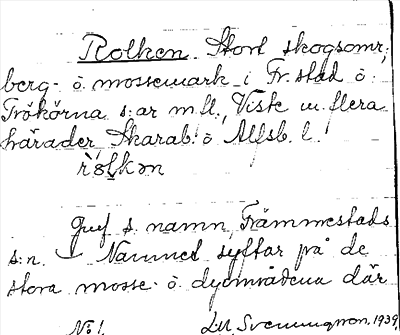 Rolken. Stort skogsomr.,
berg- o. mossemark i Fr.stad o.
Trökörna s:ar m.fl., Viste m. flera
härader Skarab. o Älfsb. l.
rolkən
Jmf s. namn, Främmestads
s:n. Namnet syftar på de
stora mosse- o. dyområdena där
No 1. D.N. Svennungsson. 1939